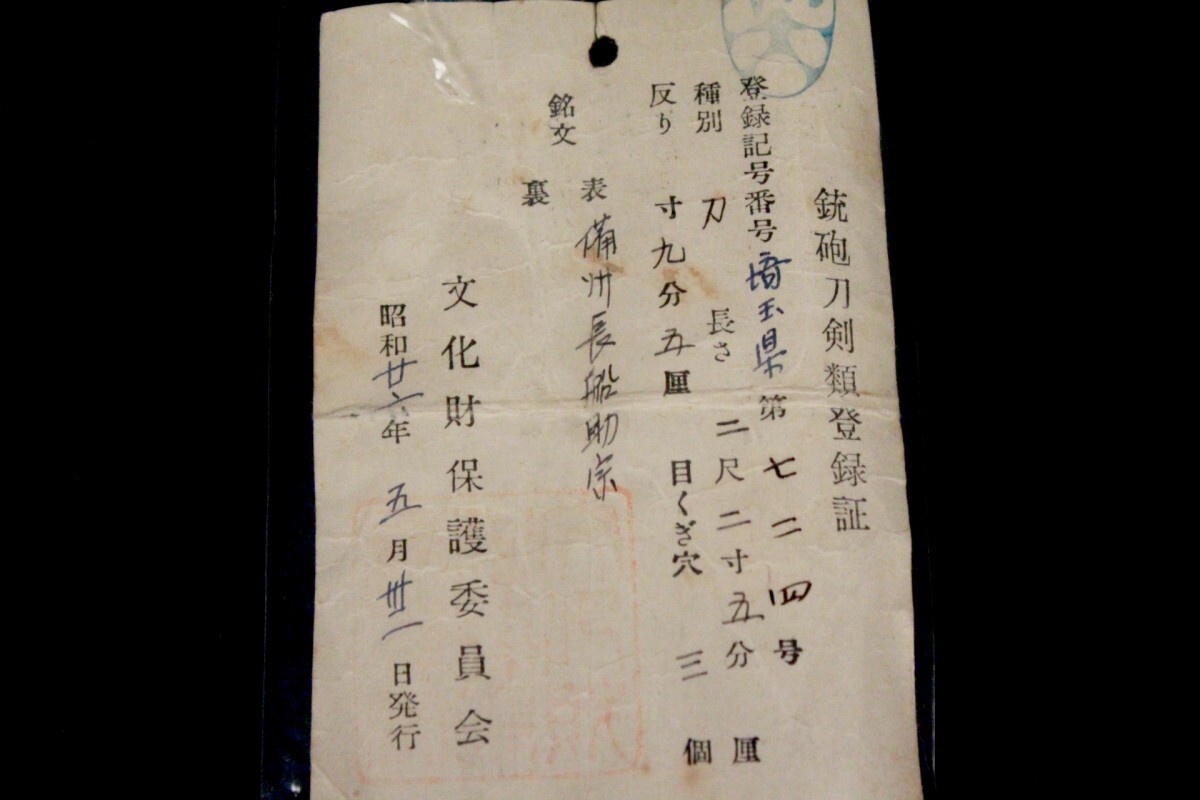 銃砲刀剣類登録証
登録記号番号埼玉県第七二四号
種別 刀 長さ 二尺二寸五分 厘
反り 寸九分五厘 目くぎ穴 三 個
銘文 表 備州長船助宗
裏
文化財保護委員会
昭和廿六年五月卅一日発行